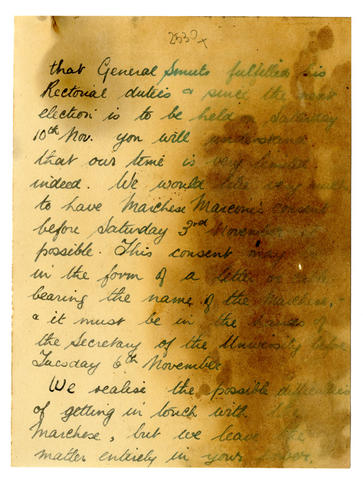 2530x
that General Smuts fulfilled his
Rectorial duties & since the next
election is to be held Saturday
10th Nov. you will understand
that our time is very limited
indeed. We would like very much
to have Marchese Marconi's consent
before Saturday 3rd November
possible. This consent may
in the form of a letter or
bearing the name of the Marchese,
& it must be in the hands of
the Secretary of the University
Tuesday 6th November
We realise the possible difficulties
of getting in touch with the
Marchese, but we leave the
matter entirely in your